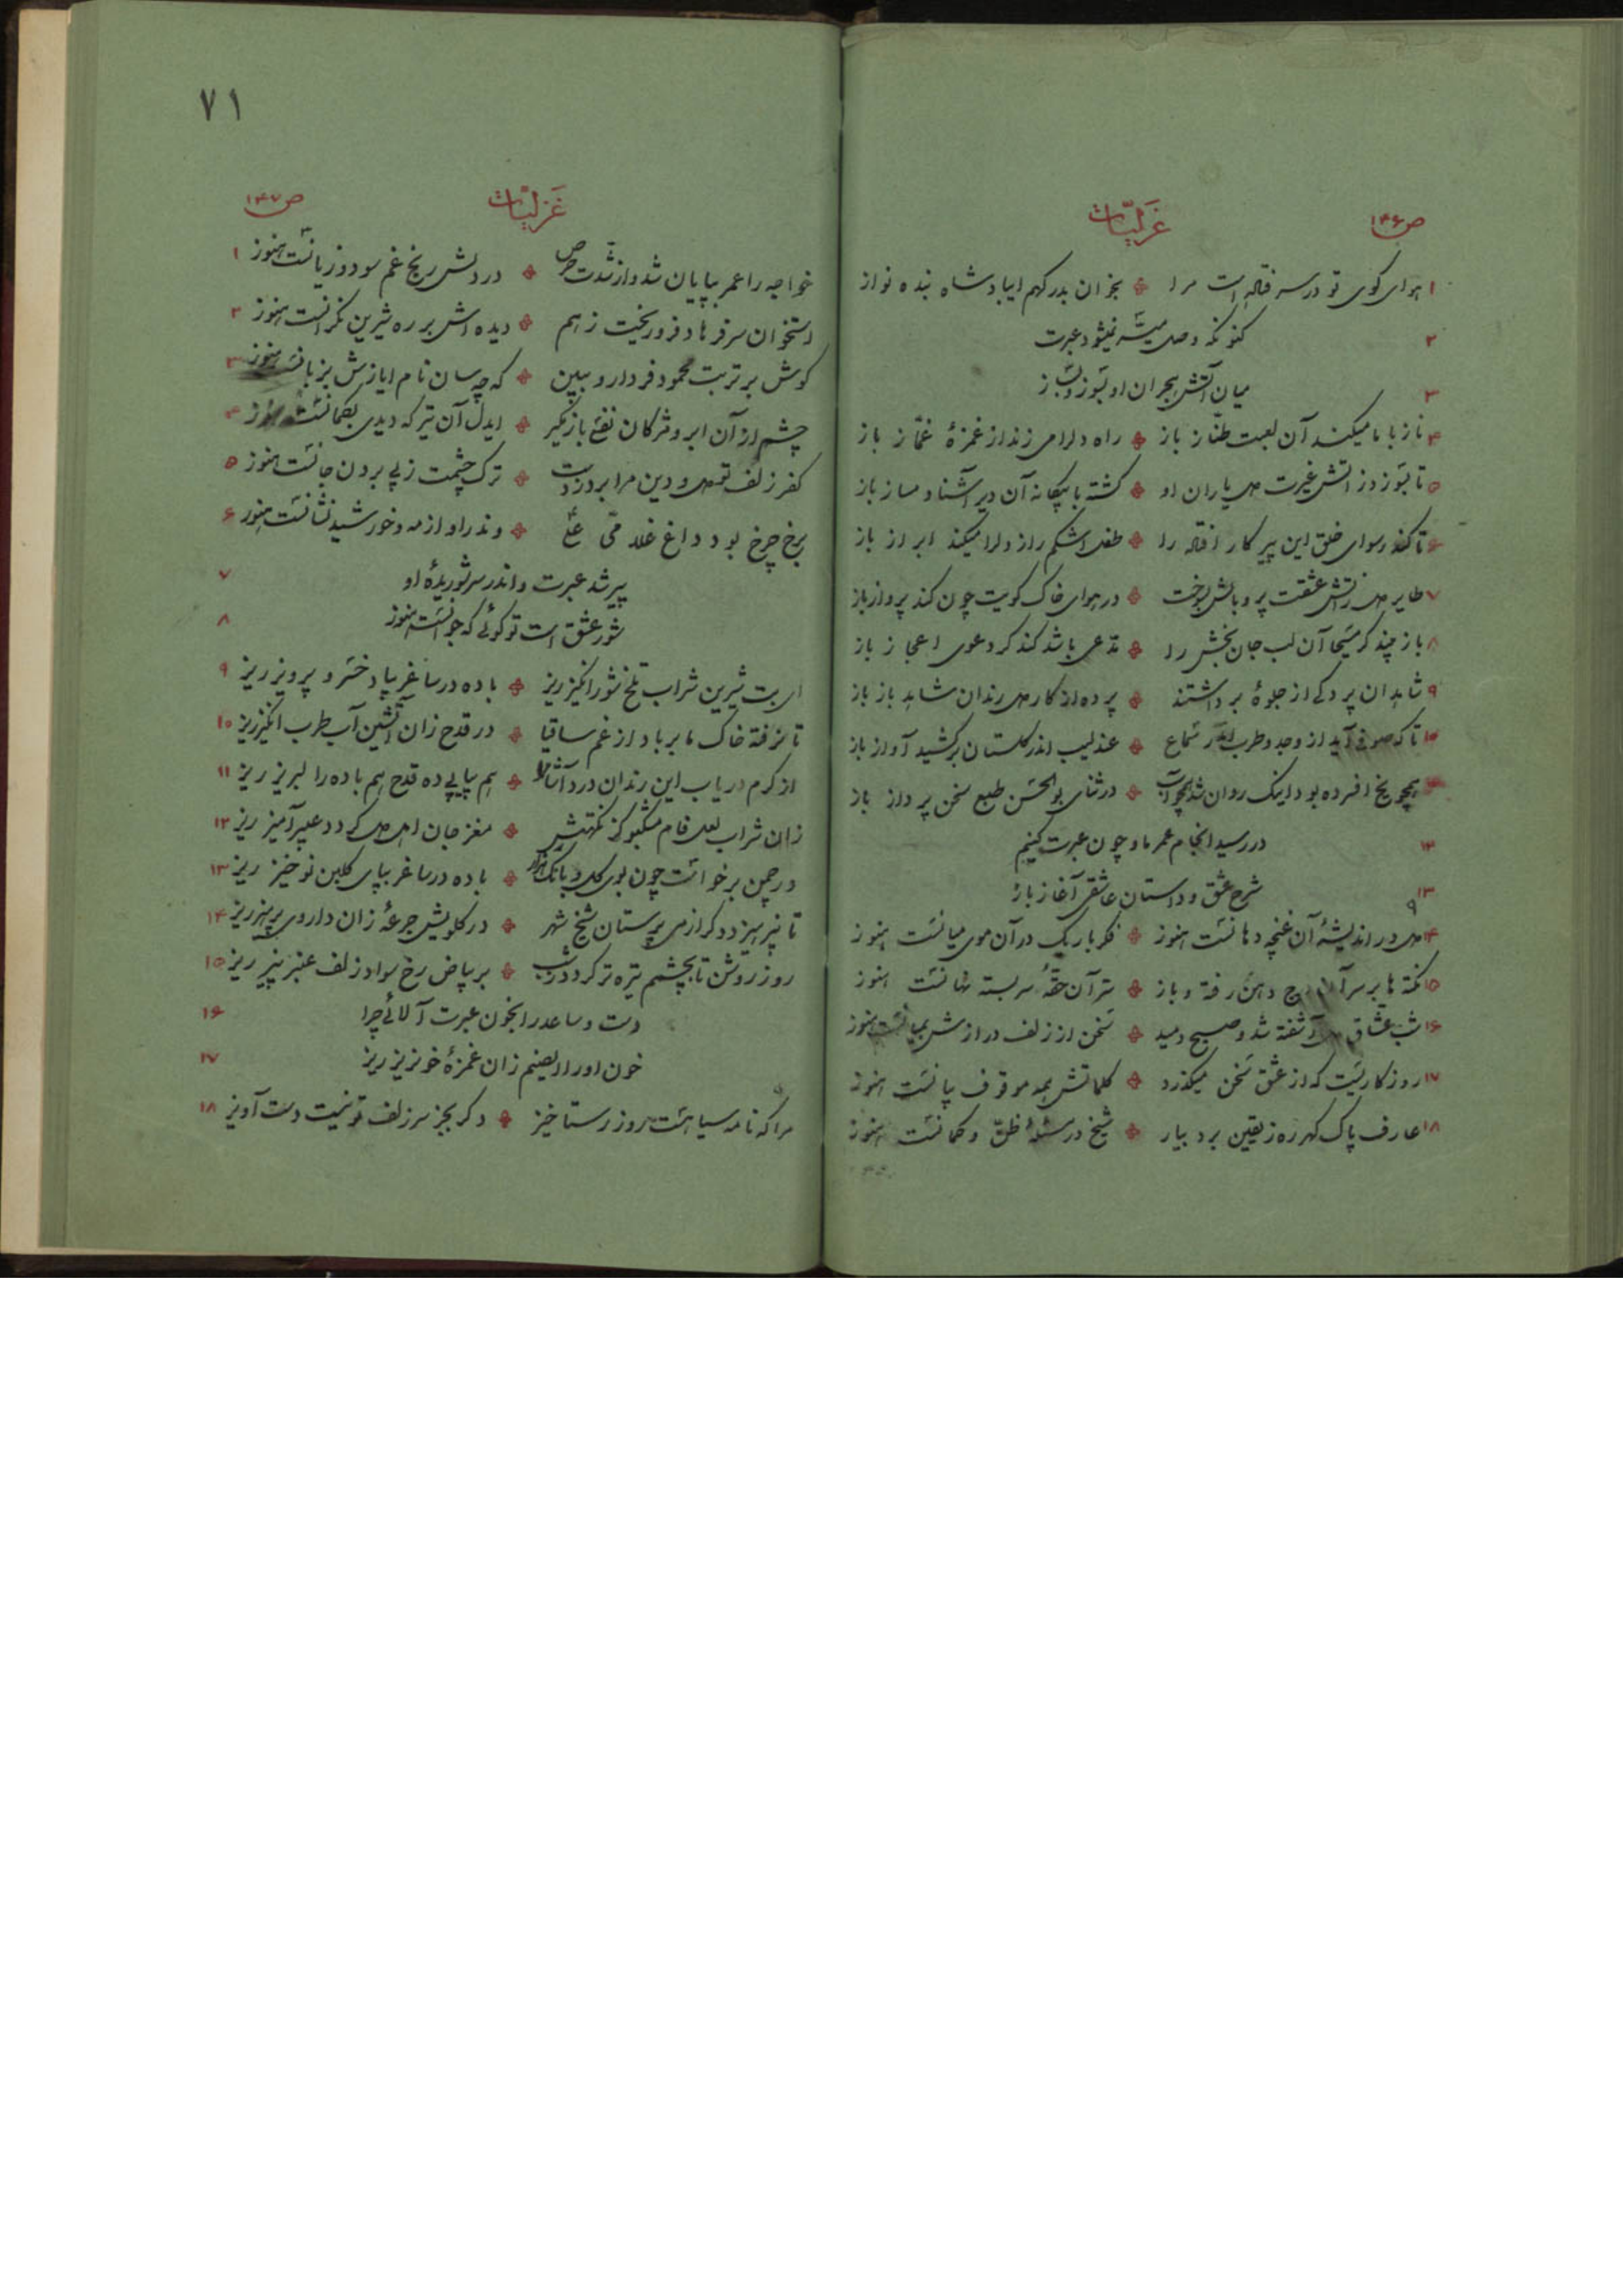 ص ۱۴۶
غزلیّات
۱ هوای کوی تو در سر فتاده است مرا ❖ بخوان بدرکهم ایپادشاه بنده نواز
۲ کنونکه وصل میسّر نمیشود عبرت
۳ میان آتش هجران او بسوز و بساز
۴ ناز با ما میکند آن لعبت طنّاز باز ❖ راه دلرا می زند از غمزهٔ غمّاز باز
۵ تا بسوزد ز آتش غیرت دل یاران او ❖ کشته با بیکانه آن دیر آشنا دمساز باز
۶ تا کند رسوای خلق این پیر کار افتاده را ❖ طفل اشکم راز دلرا میکند ابراز باز
۷ طایر دل ز آتش عشقت پر و بالش بسوخت ❖ در هوای خاک کویت چون کند پرواز باز
۸ باز چند کر مسیحا آن لب جان بخش را ❖ مدّعی باشد کند کر دعوی اعجاز باز
۹ شاهدان پردکی از جلوه برداشتند ❖ پرده از کار دل رندان شاهد باز باز
۱۰ تا که صوفی آید از وجد و طرب اندر سماع ❖ عندلیب اندر کلستان برکشید آواز باز
همچو یخ افسرده بود اینک روان شد همچو آب ❖ در ثنای بوالحسن طبع سخن پرداز باز
۱۲ در رسید انجام عمر ما و چون عبرت کنیم
۱۳ شرح عشق و داستان عاشقی آغاز باز
۱۴ دل در اندیشهٔ آن غنچه دهانست هنوز ❖ فکر باریک در آن موی میانست هنوز
۱۵ نکته ها بر سر آن درج دهن رفته و باز ❖ سرّ آن حقّهٔ سربسته نهانست هنوز
۱۶ شب عشّاق دل آشفته شد و صبح دمید ❖ سخن از زلف درازش بمیانست هنوز
۱۷ روزکاریست که از عشق سخن میکذرد ❖ کلماتش همه موقوف بیانست هنوز
۱۸ عارف پاک کهر ره ز یقین برد بیار ❖ شیخ در مسئلهٔ ظنّ و کمانست هنوز
۷۱
ص ۱۴۷
غزلیّات
خواجه را عمر بپایان شد و از شدّت حرص ❖ در دلش رنج و غم سود و زیانست هنوز ۱
استخوان سر فرهاد فرو ریخت ز هم ❖ دیده اش بر ره شیرین نکرانست هنوز ۲
کوش بر تربت محمود فرا دار و ببین ❖ که چسان نام ایازش بزبانست هنوز ۳
چشم از آن ابرو و مژکان نفسی باز مکیر ❖ ایدل آن تیر که دیدی بکمانست هنوز ۴
کفر زلف تو دل و دین مرا برد ز دست ❖ ترک چشمت ز پی بردن جانست هنوز ۵
برخ چرخ بود داغ غلامّی علی ❖ وندر او از مه و خورشید نشانست هنوز ۶
پیر شد عبرت و اندر سر شوریدهٔ او ۷
شور عشق است تو کوئی که جوانست هنوز ۸
ای بت شیرین شراب تلخ شور انکیز ریز ❖ باده در ساغر بیاد خسرو پرویز ریز ۹
تا نرفته خاک ما بر باد از غم ساقیا ❖ در قدح زان آتشین آب طرب انکیز ریز ۱۰
از کرم دریاب این رندان درد آشام را ❖ هم پیاپی ده قدح هم باده را لبریز ریز ۱۱
زان شراب لعل فام مشکبو کز نکهتش ❖ مغز جان اهل دل کردد عبیر آمیز ریز ۱۲
در چمن برخواست چون بوی کل و بانک هزار ❖ باده در ساغر بپای کلبن نوخیز ریز ۱۳
تا نپرهیزد دکر از می پرستان شیخ شهر ❖ در کلویش جرعهٔ زان داروی پرهیز ریز ۱۴
روز روشن تا بچشم تیره تر کردد ز شب ❖ بر بیاض رخ سواد زلف عنبر بیز ریز ۱۵
دست و ساعد را بخون عبرت آلائی چرا ۱۶
خون او را ایصنم زان غمزهٔ خونریز ریز ۱۷
مرا که نامه سیاهست روز رستاخیز ❖ دکر بجز سر زلف تو نیست دست آویز ۱۸